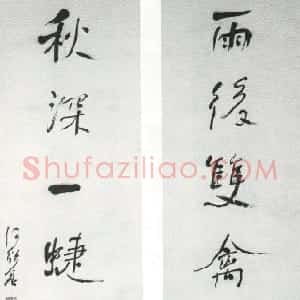 雨後雙禽
秋深一蜨
何紹基
Shufaziliao.COM